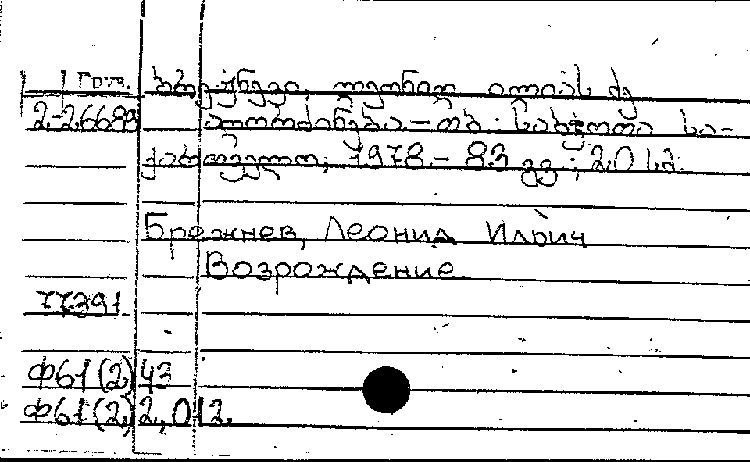 Груз. ბრეჟნევი, ლეონიდ ილიას ძე
2-26689 აღორძინება.-თბ.: საბჭოთა სა-
ქართველო, 1978.- 83 გვ.; 20 სმ.
Брежнев, Леонид Ильич
Возрождение
77391
Ф61(2)43
Ф61(2)2,012.